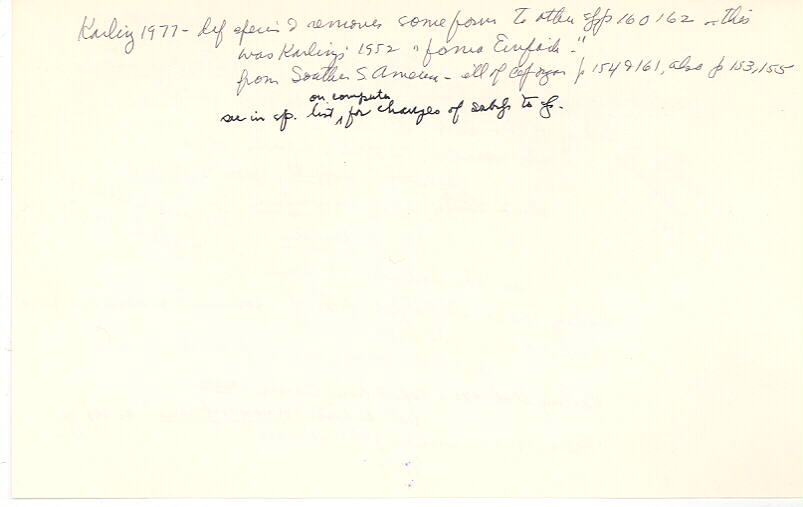 Karling 1977 - def species & removes some forms to other spp 160 162 - this
was Karling's 1952 "forma Einfach"
from Southern S. America - ill of cop organ p 154 & 161, also p 153, 155
on computer
see in sp. list, for changes of subgs to gs.